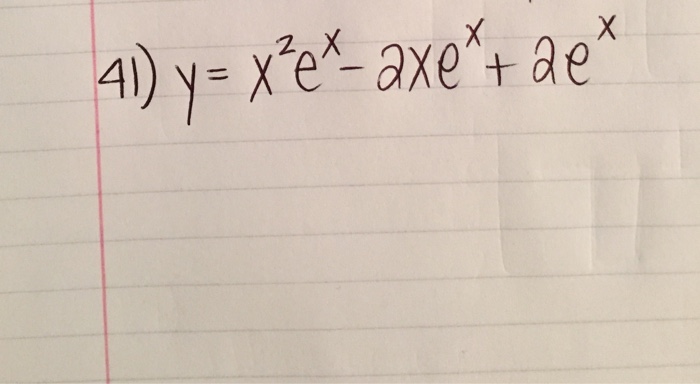 41) y = x²eˣ - 2xeˣ + 2eˣ